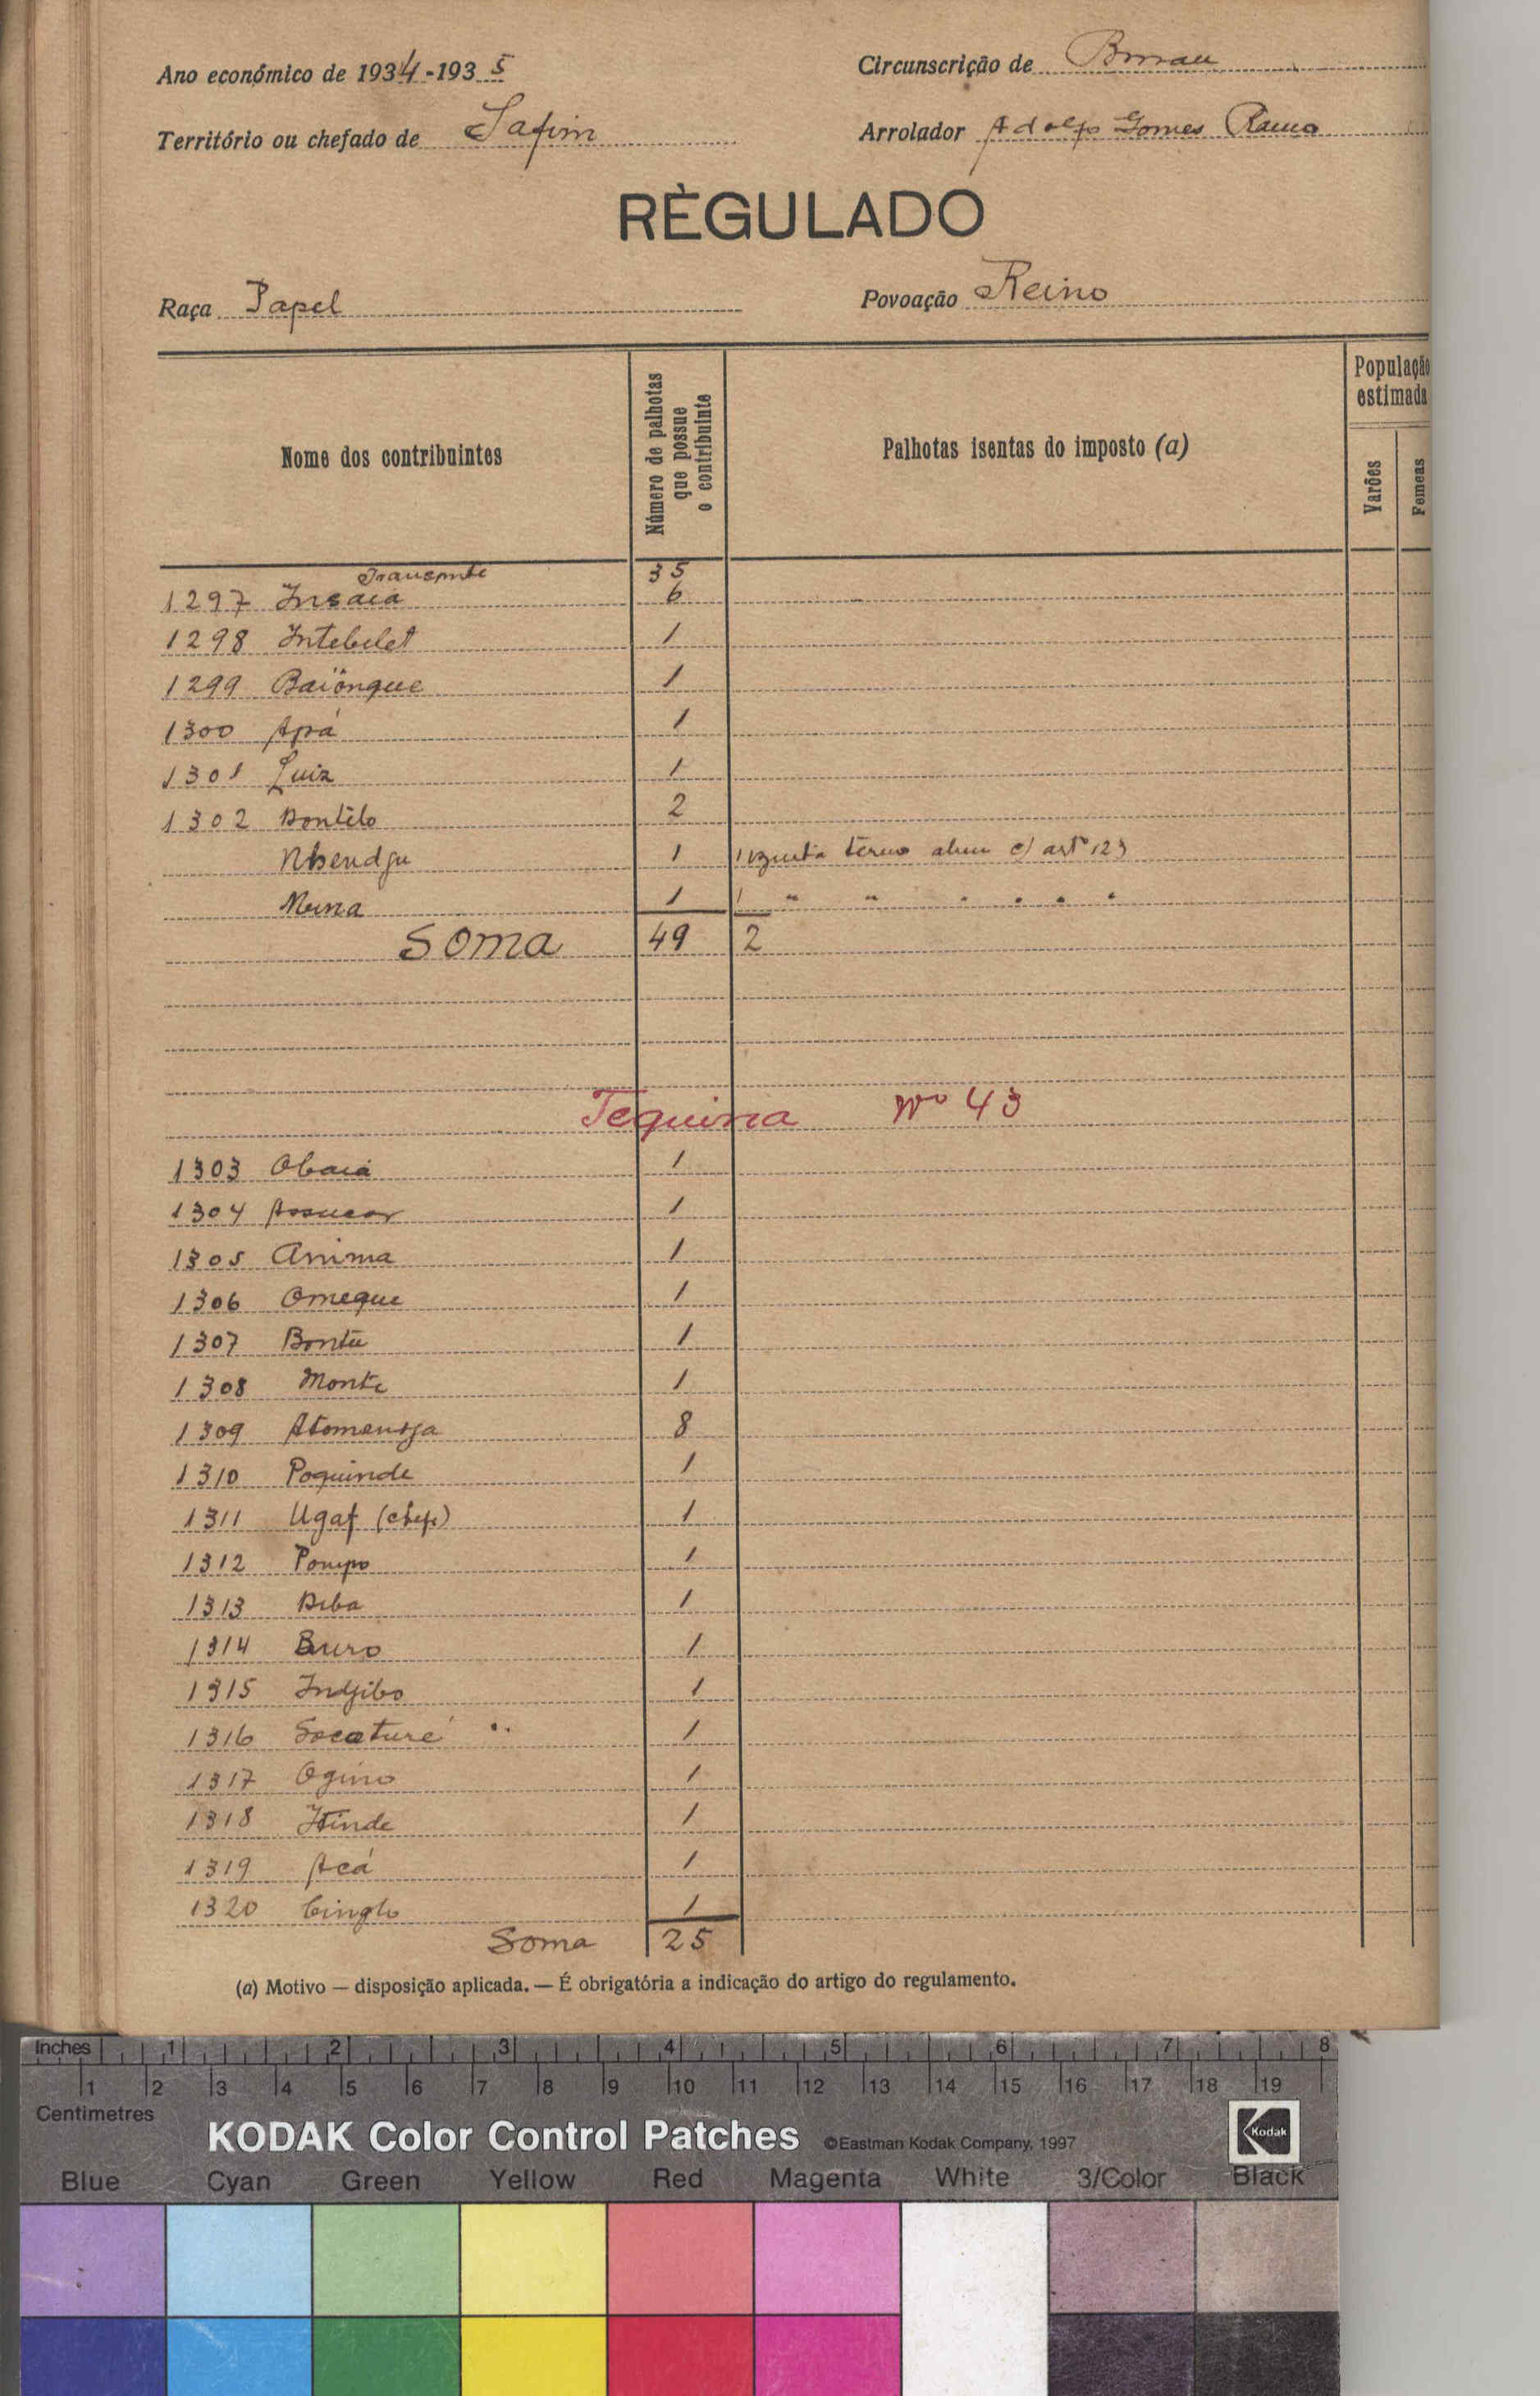 Ano económico de 1934-1935
Circunscrição de Bissau
Território ou chefado de Safim
Arrolador Adolfo Gomes Ramos
RÈGULADO
Raça Papel
Povoação Reino
Nome dos contribuintes
Número de palhotas que possue o contribuinte
Palhotas isentas do imposto (a)
População estimada
Varões
Femeas
Transporte 35
1297 Insaia 6
1298 Intebelet 1
1299 Baiongue 1
1300 Apá 1
1301 Luiz 1
1302 Dontilo 2
Nhendgu 1 1 c/ artº 123
Meina 1 1 " " " " " "
Soma 49 2
Tequina Nº 43
1303 Obaia 1
1304 Assucar 1
1305 Anima 1
1306 Omeque 1
1307 Bontu 1
1308 Monte 1
1309 8
1310 Poquinde 1
1311 Ugaf (chefe) 1
1312 Pompo 1
1313 Diba 1
1314 Buro 1
1315 Indjibo 1
1316 Socaturé 1
1317 Ogino 1
1318 Itinde 1
1319 Acá 1
1320 Cinglo 1
Soma 25
(a) Motivo — disposição aplicada. — É obrigatória a indicação do artigo do regulamento.
Inches 1 2 3 4 5 6 7 8
1 2 3 4 5 6 7 8 9 10 11 12 13 14 15 16 17 18 19
Centimetres
KODAK Color Control Patches ©Eastman Kodak Company, 1997 Kodak
Blue Cyan Green Yellow Red Magenta White 3/Color Black